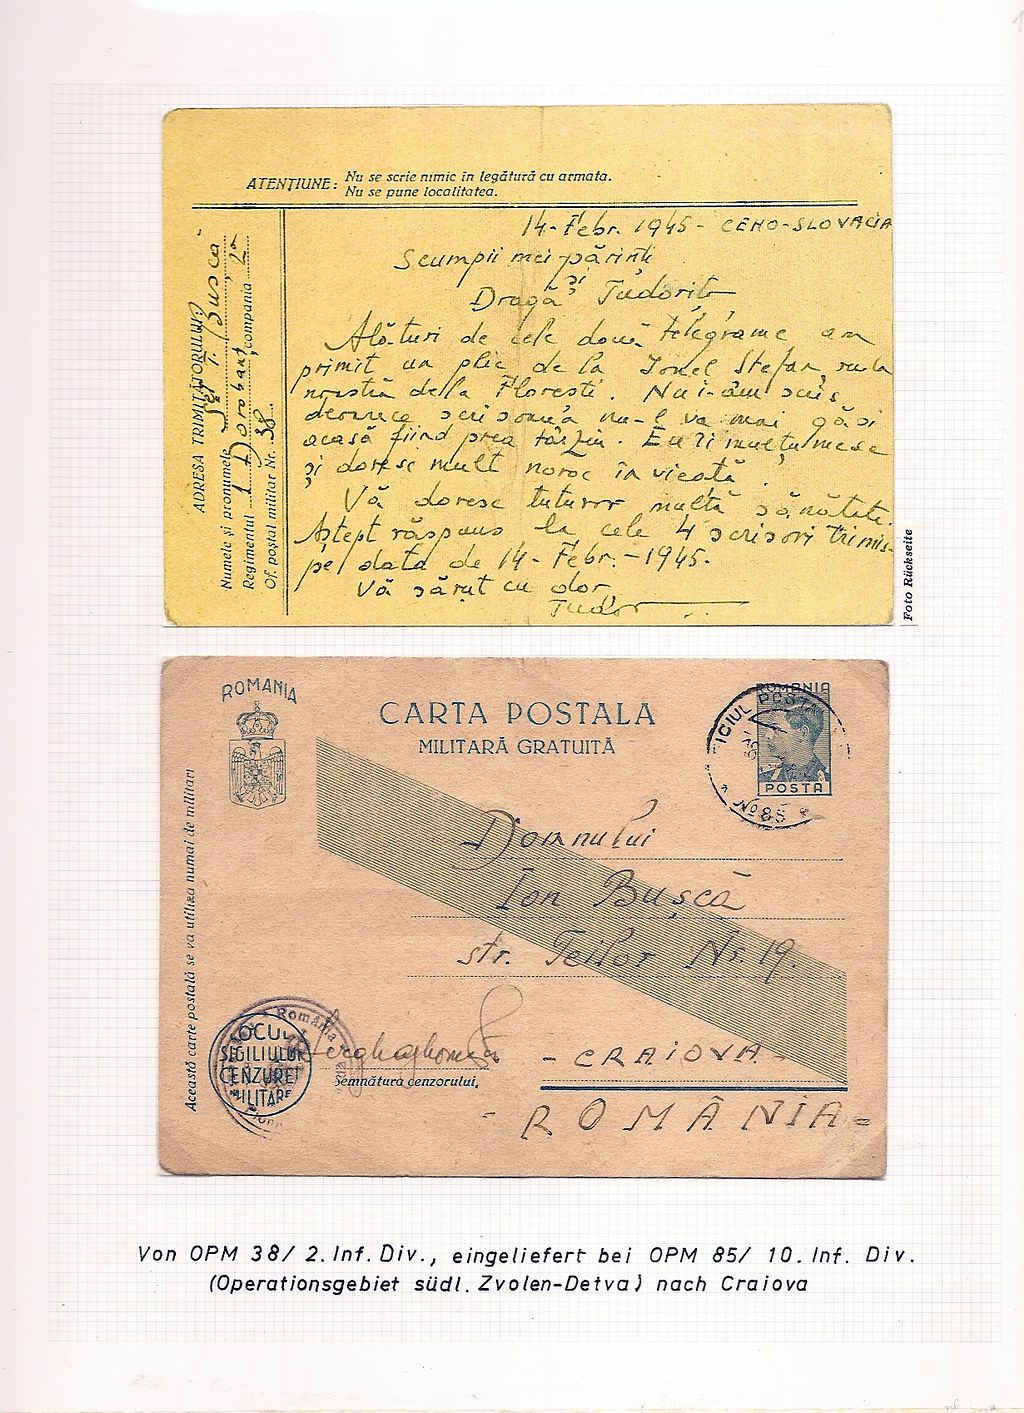 ATENȚIUNE: Nu se scrie nimic în legătură cu armata.
Nu se pune localitatea.
ADRESA TRIMIȚĂTORULUI:
Numele și pronumele
Regimentul 1 Dorobanț, compania 2a
Of. poștal militar Nr. 38
14-Febr. 1945- CEHO-SLOVACIA
Scumpii mei părinți
și
Dragă Tudoriță
Alături de cele două telegrame am
primit un plic de la Ionel Stefan, ruda
noastră de la Florești. Nu i-am scris
deoarece scrisoarea nu-l va mai găsi
acasă fiind prea târziu. Eu îi mulțumesc
și doresc mult noroc în vieață.
Vă doresc tuturor multă sănătate.
Aștept răspuns la cele 4 scrisori trimis-
pe data de 14-Febr.-1945.
Vă sărut cu dor
Tudor
Foto Rückseite
ROMANIA
CARTA POSTALA
MILITARĂ GRATUITĂ
ROMANIA
POSTA
ICIUL POSTA
No 85
Această carte poștală se va utiliza numai de militari
Domnului
Ion Bușcă
str. Teilor Nr. 19.
- CRAIOVA -
- ROMÂNIA =
LOCUL
SIGILIULUI
CENZUREI
MILITARE
România
Semnătura cenzorului,
Von OPM 38/ 2. Inf. Div., eingeliefert bei OPM 85/ 10. Inf. Div.
(Operationsgebiet südl. Zvolen-Detva) nach Craiova